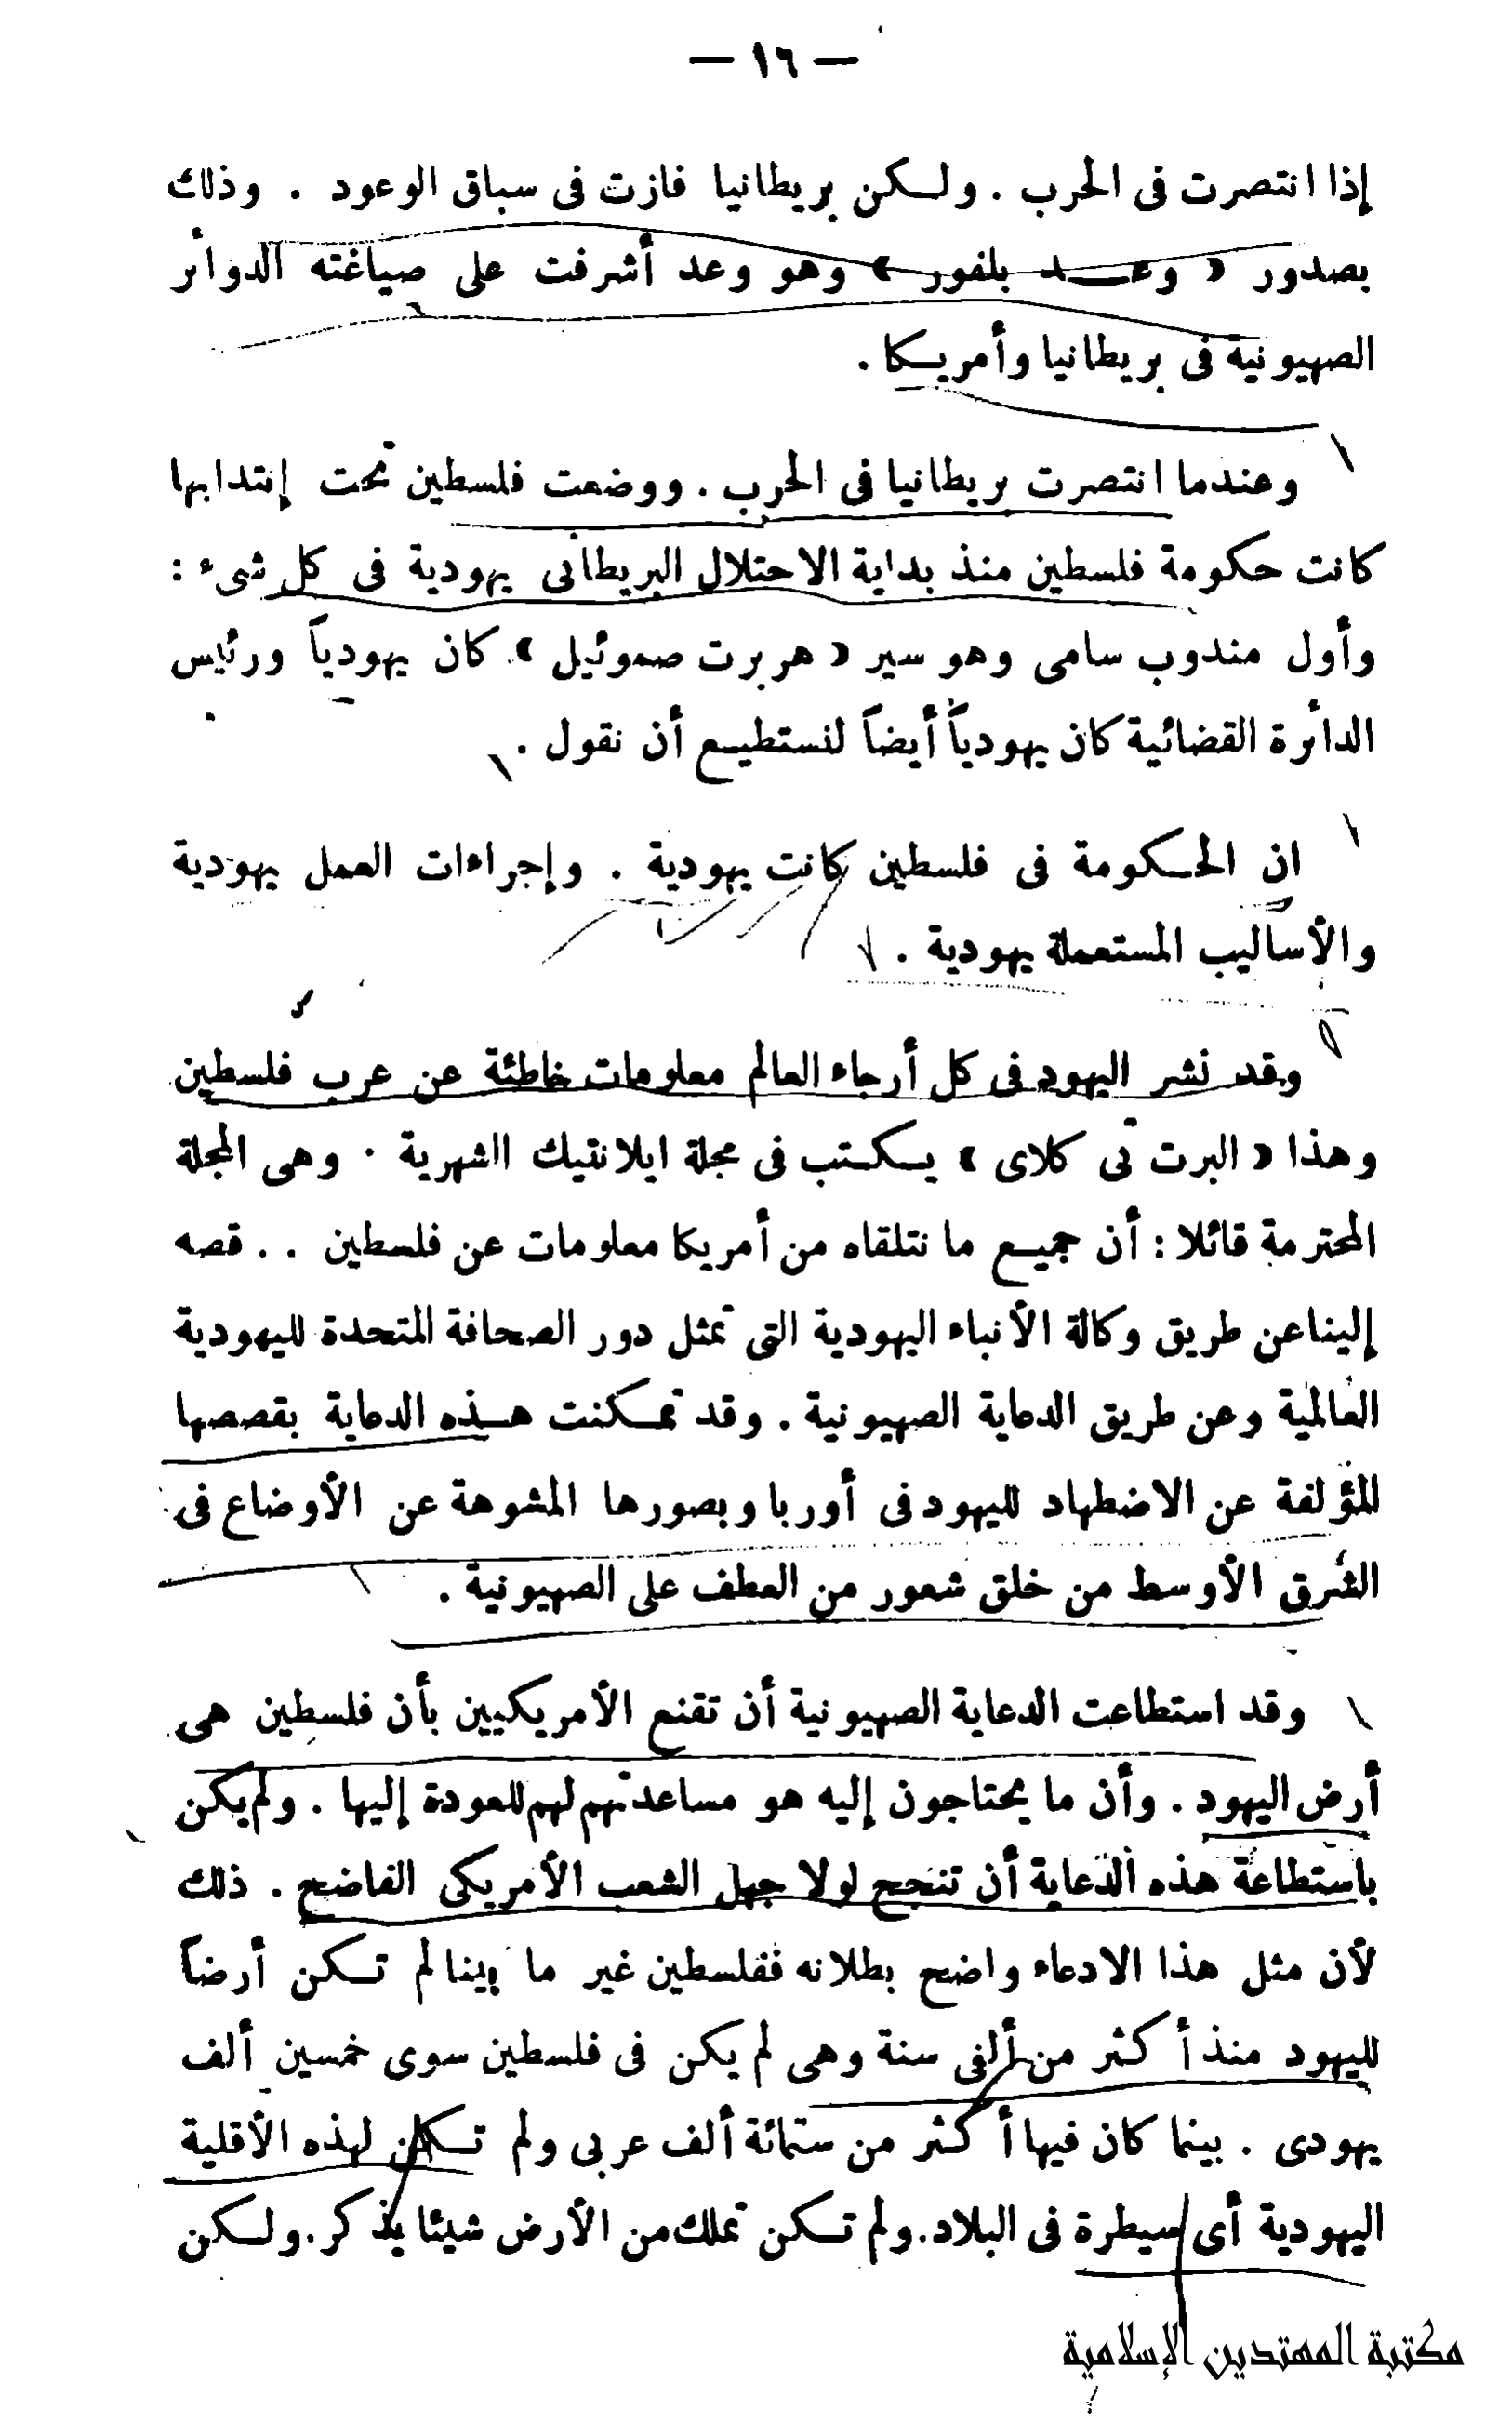 — ١٦ —
إذا انتصرت فى الحرب . ولكن بريطانيا فازت فى سباق الوعود . وذلك
بصدور « وعد بلفور » وهو وعد أشرفت على صياغته الدوائر
الصهيونية فى بريطانيا وأمريكا .
وعندما انتصرت بريطانيا فى الحرب . ووضعت فلسطين تحت إنتدابها
كانت حكومة فلسطين منذ بداية الاحتلال البريطانى يهودية فى كل شىء :
وأول مندوب سامى وهو سير « هربرت صموئيل » كان يهودياً ورئيس
الدائرة القضائية كان يهودياً أيضاً لنستطيع أن نقول .
ان الحكومة فى فلسطين كانت يهودية . وإجراءات العمل يهودية
والأساليب المستعملة يهودية .
وقد نشر اليهود فى كل أرجاء العالم معلومات خاطئة عن عرب فلسطين
وهذا « البرت تى كلاى » يكتب فى مجلة ايلانتيك الشهرية . وهى المجلة
المحترمة قائلا : أن جميع ما نتلقاه من أمريكا معلومات عن فلسطين . . قصه
إلينا عن طريق وكالة الأنباء اليهودية التى تمثل دور الصحافة المتحدة لليهودية
العالمية وعن طريق الدعاية الصهيونية . وقد تمكنت هذه الدعاية بقصصها
المؤلفة عن الاضطهاد لليهود فى أوربا وبصورها المشوهة عن الأوضاع فى
الشرق الأوسط من خلق شعور من العطف على الصهيونية .
وقد استطاعت الدعاية الصهيونية أن تقنع الأمريكيين بأن فلسطين هى
أرض اليهود . وأن ما يحتاجون إليه هو مساعدتهم لهم للعودة إليها . ولم يكن
باستطاعة هذه الدعاية أن تنجح لولا جهل الشعب الأمريكى الفاضح . ذلك
لأن مثل هذا الادعاء واضح بطلانه ففلسطين غير ما بينا لم تكن أرضاً
لليهود منذ أكثر من ألفى سنة وهى لم يكن فى فلسطين سوى خمسين ألف
يهودى . بينما كان فيها أكثر من ستمائة ألف عربى ولم تكن لهذه الأقلية
اليهودية أى سيطرة فى البلاد . ولم تكن تملك من الأرض شيئا يذكر . ولكن
مكتبة المهتدين الإسلامية